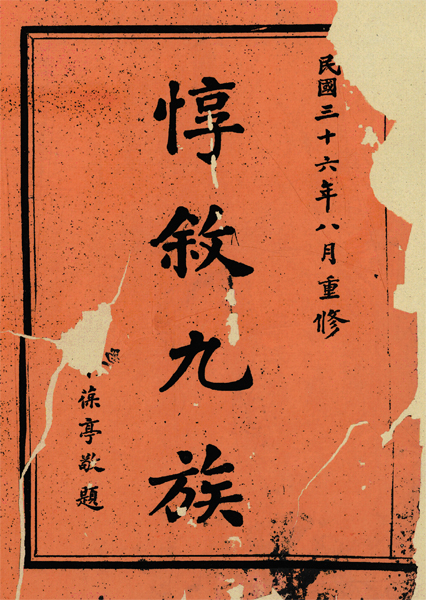 民國三十六年八月重修
惇敘九族
葆亭敬題